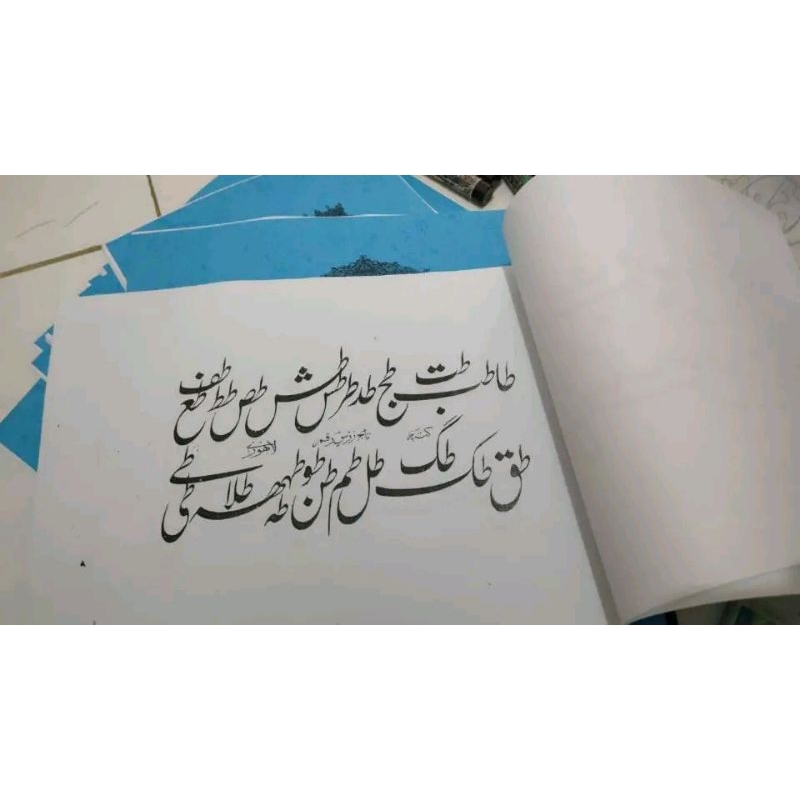 طا طب طت طج طد طر طس طش طص طط طع طف
کتبہ تاج زریں رقم لاہوری
طق طک طگ طل طم طن طو طہ طھ طلا طی طے